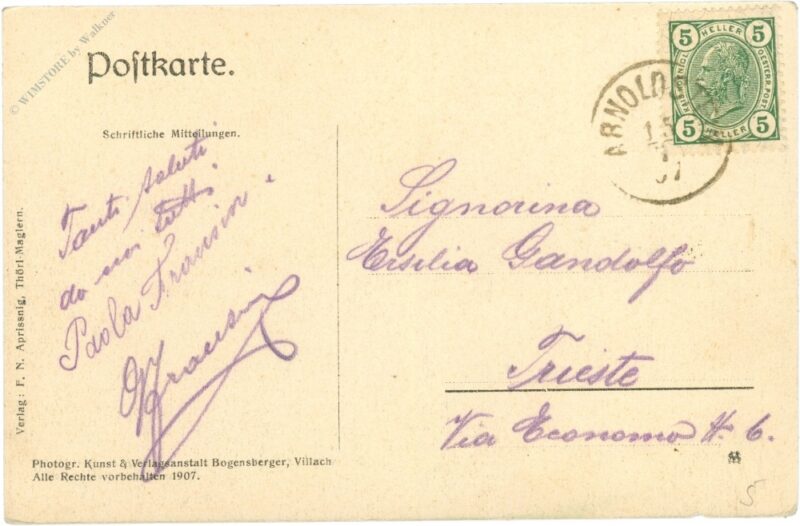 © WIMSTORE by Walkner
Postkarte.
5 HELLER 5
KAIS. KÖNIGL. OESTERR. POST.
5 HELLER 5
ARNOLD
15
07
Schriftliche Mitteilungen.
Tanti saluti
da noi tutti.
Paola Fransin
Fransin
Signorina
Ersilia Gandolfo
Trieste
Via Economo N. 6.
Verlag: F. N. Aprissnig, Thörl-Maglern.
Photogr. Kunst & Verlagsanstalt Bogensberger, Villach
Alle Rechte vorbehalten 1907.
5